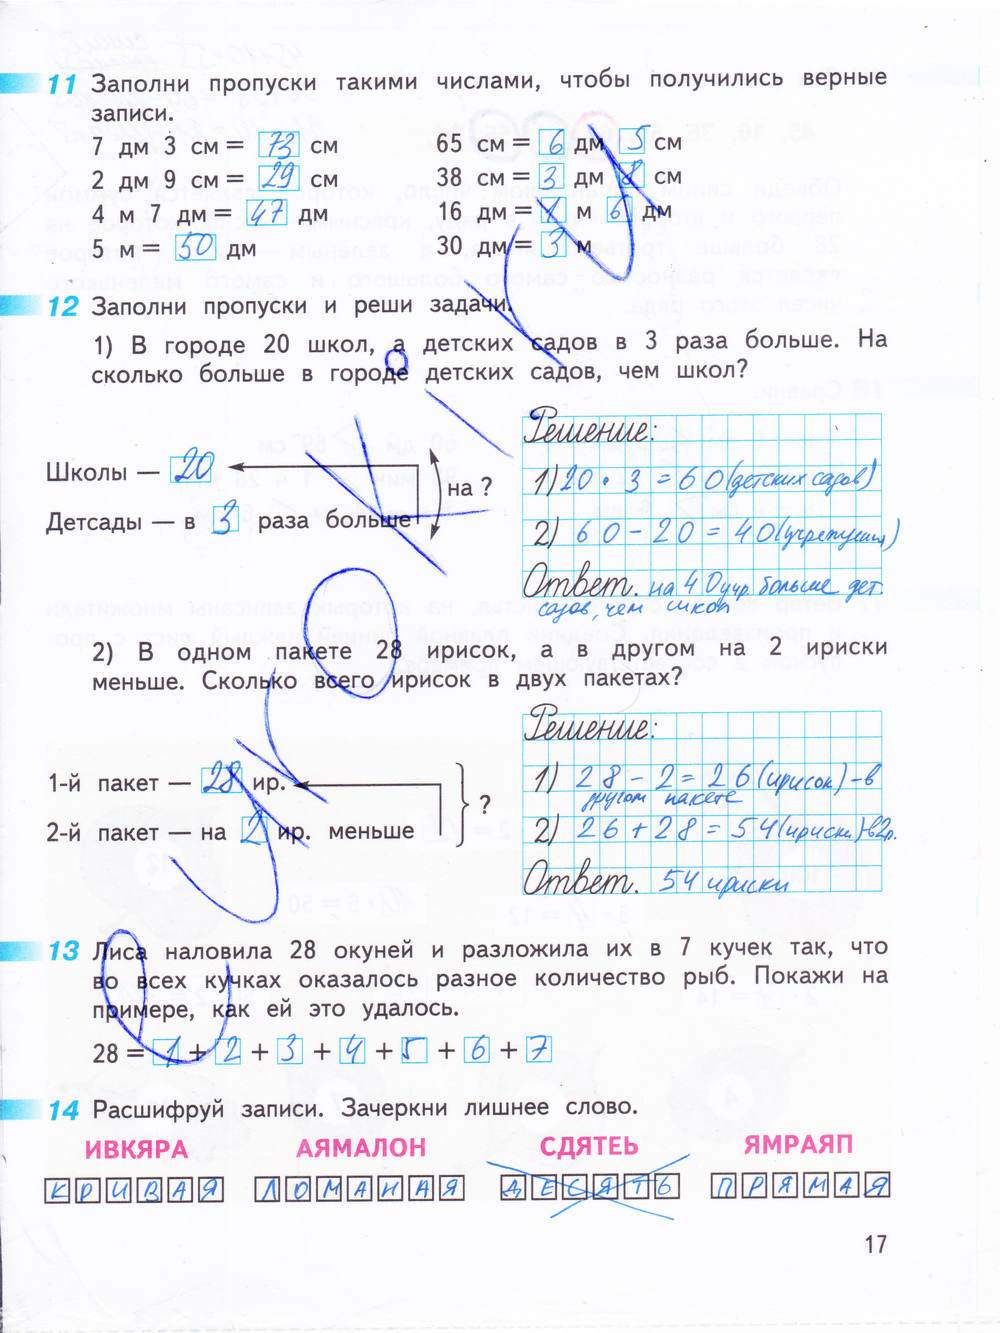 11 Заполни пропуски такими числами, чтобы получились верные
записи.
7 дм 3 см = 73 см 65 см = 6 дм 5 см
2 дм 9 см = 29 см 38 см = 3 дм 8 см
4 м 7 дм = 47 дм 16 дм = 1 м 6 дм
5 м = 50 дм 30 дм = 3 м
12 Заполни пропуски и реши задачи.
1) В городе 20 школ, а детских садов в 3 раза больше. На
сколько больше в городе детских садов, чем школ?
Школы — 20
Детсады — в 3 раза больше
на ?
Решение:
1) 20 · 3 = 60 (детских садов)
2) 60 - 20 = 40 (учреждения)
Ответ. на 40 учр. больше дет.
садов, чем школ
2) В одном пакете 28 ирисок, а в другом на 2 ириски
меньше. Сколько всего ирисок в двух пакетах?
1-й пакет — 28 ир.
2-й пакет — на 2 ир. меньше
?
Решение:
1) 28 - 2 = 26 (ирисок) - в
другом пакете
2) 26 + 28 = 54 (ириски) - в 2 п.
Ответ. 54 ириски
13 Лиса наловила 28 окуней и разложила их в 7 кучек так, что
во всех кучках оказалось разное количество рыб. Покажи на
примере, как ей это удалось.
28 = 1 + 2 + 3 + 4 + 5 + 6 + 7
14 Расшифруй записи. Зачеркни лишнее слово.
ИВКЯРА АЯМАЛОН СДЯТЕЬ ЯМРАЯП
КРИВАЯ ЛОМАНАЯ ДЕСЯТЬ ПРЯМАЯ
17